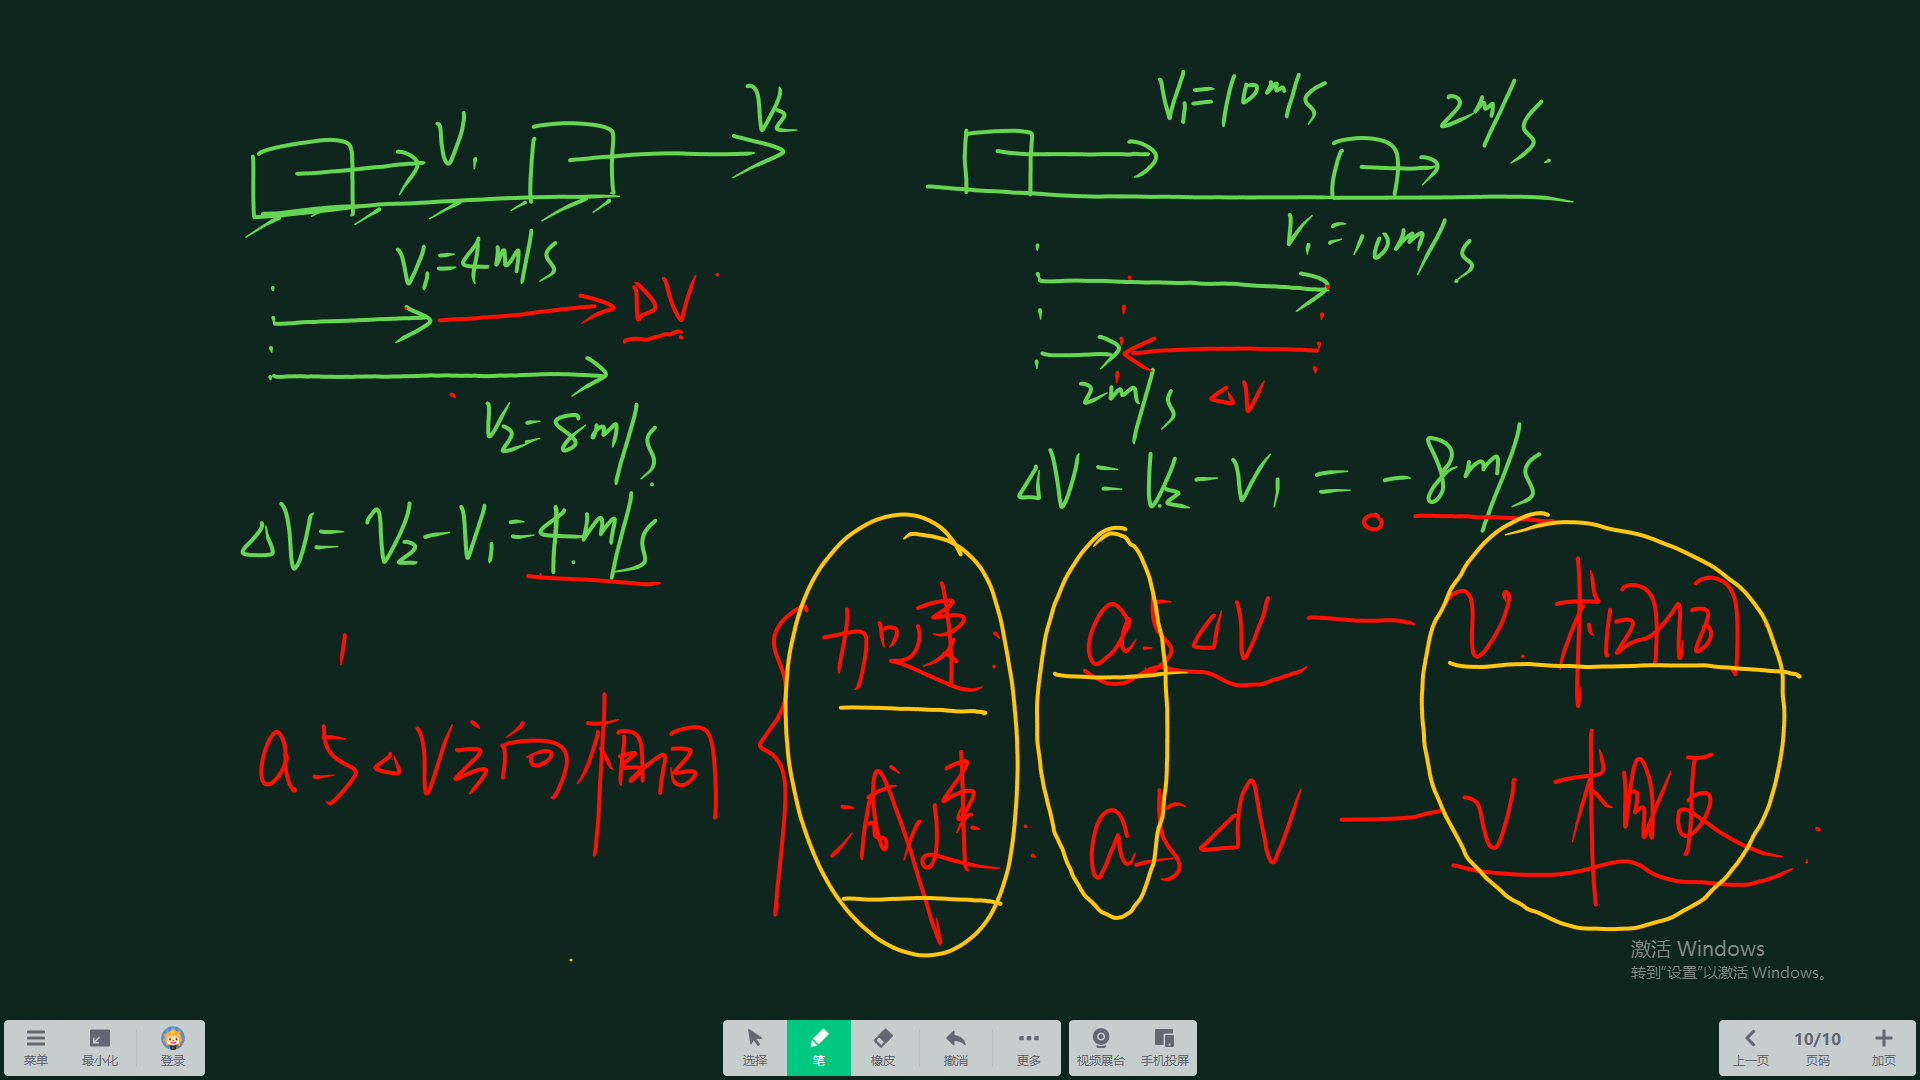 V₁
V₂
V₁=4m/s
ΔV
V₂=8m/s
ΔV=V₂-V₁=4m/s
V₁=10m/s
2m/s
V₁=10m/s
2m/s
ΔV
ΔV=V₂-V₁=-8m/s
a与ΔV方向相同
加速: a与ΔV — V 相同
减速: a与ΔV — V 相反
激活 Windows
转到“设置”以激活 Windows。
菜单
最小化
登录
选择
笔
橡皮
撤消
更多
视频展台
手机投屏
上一页
10/10
页码
加页